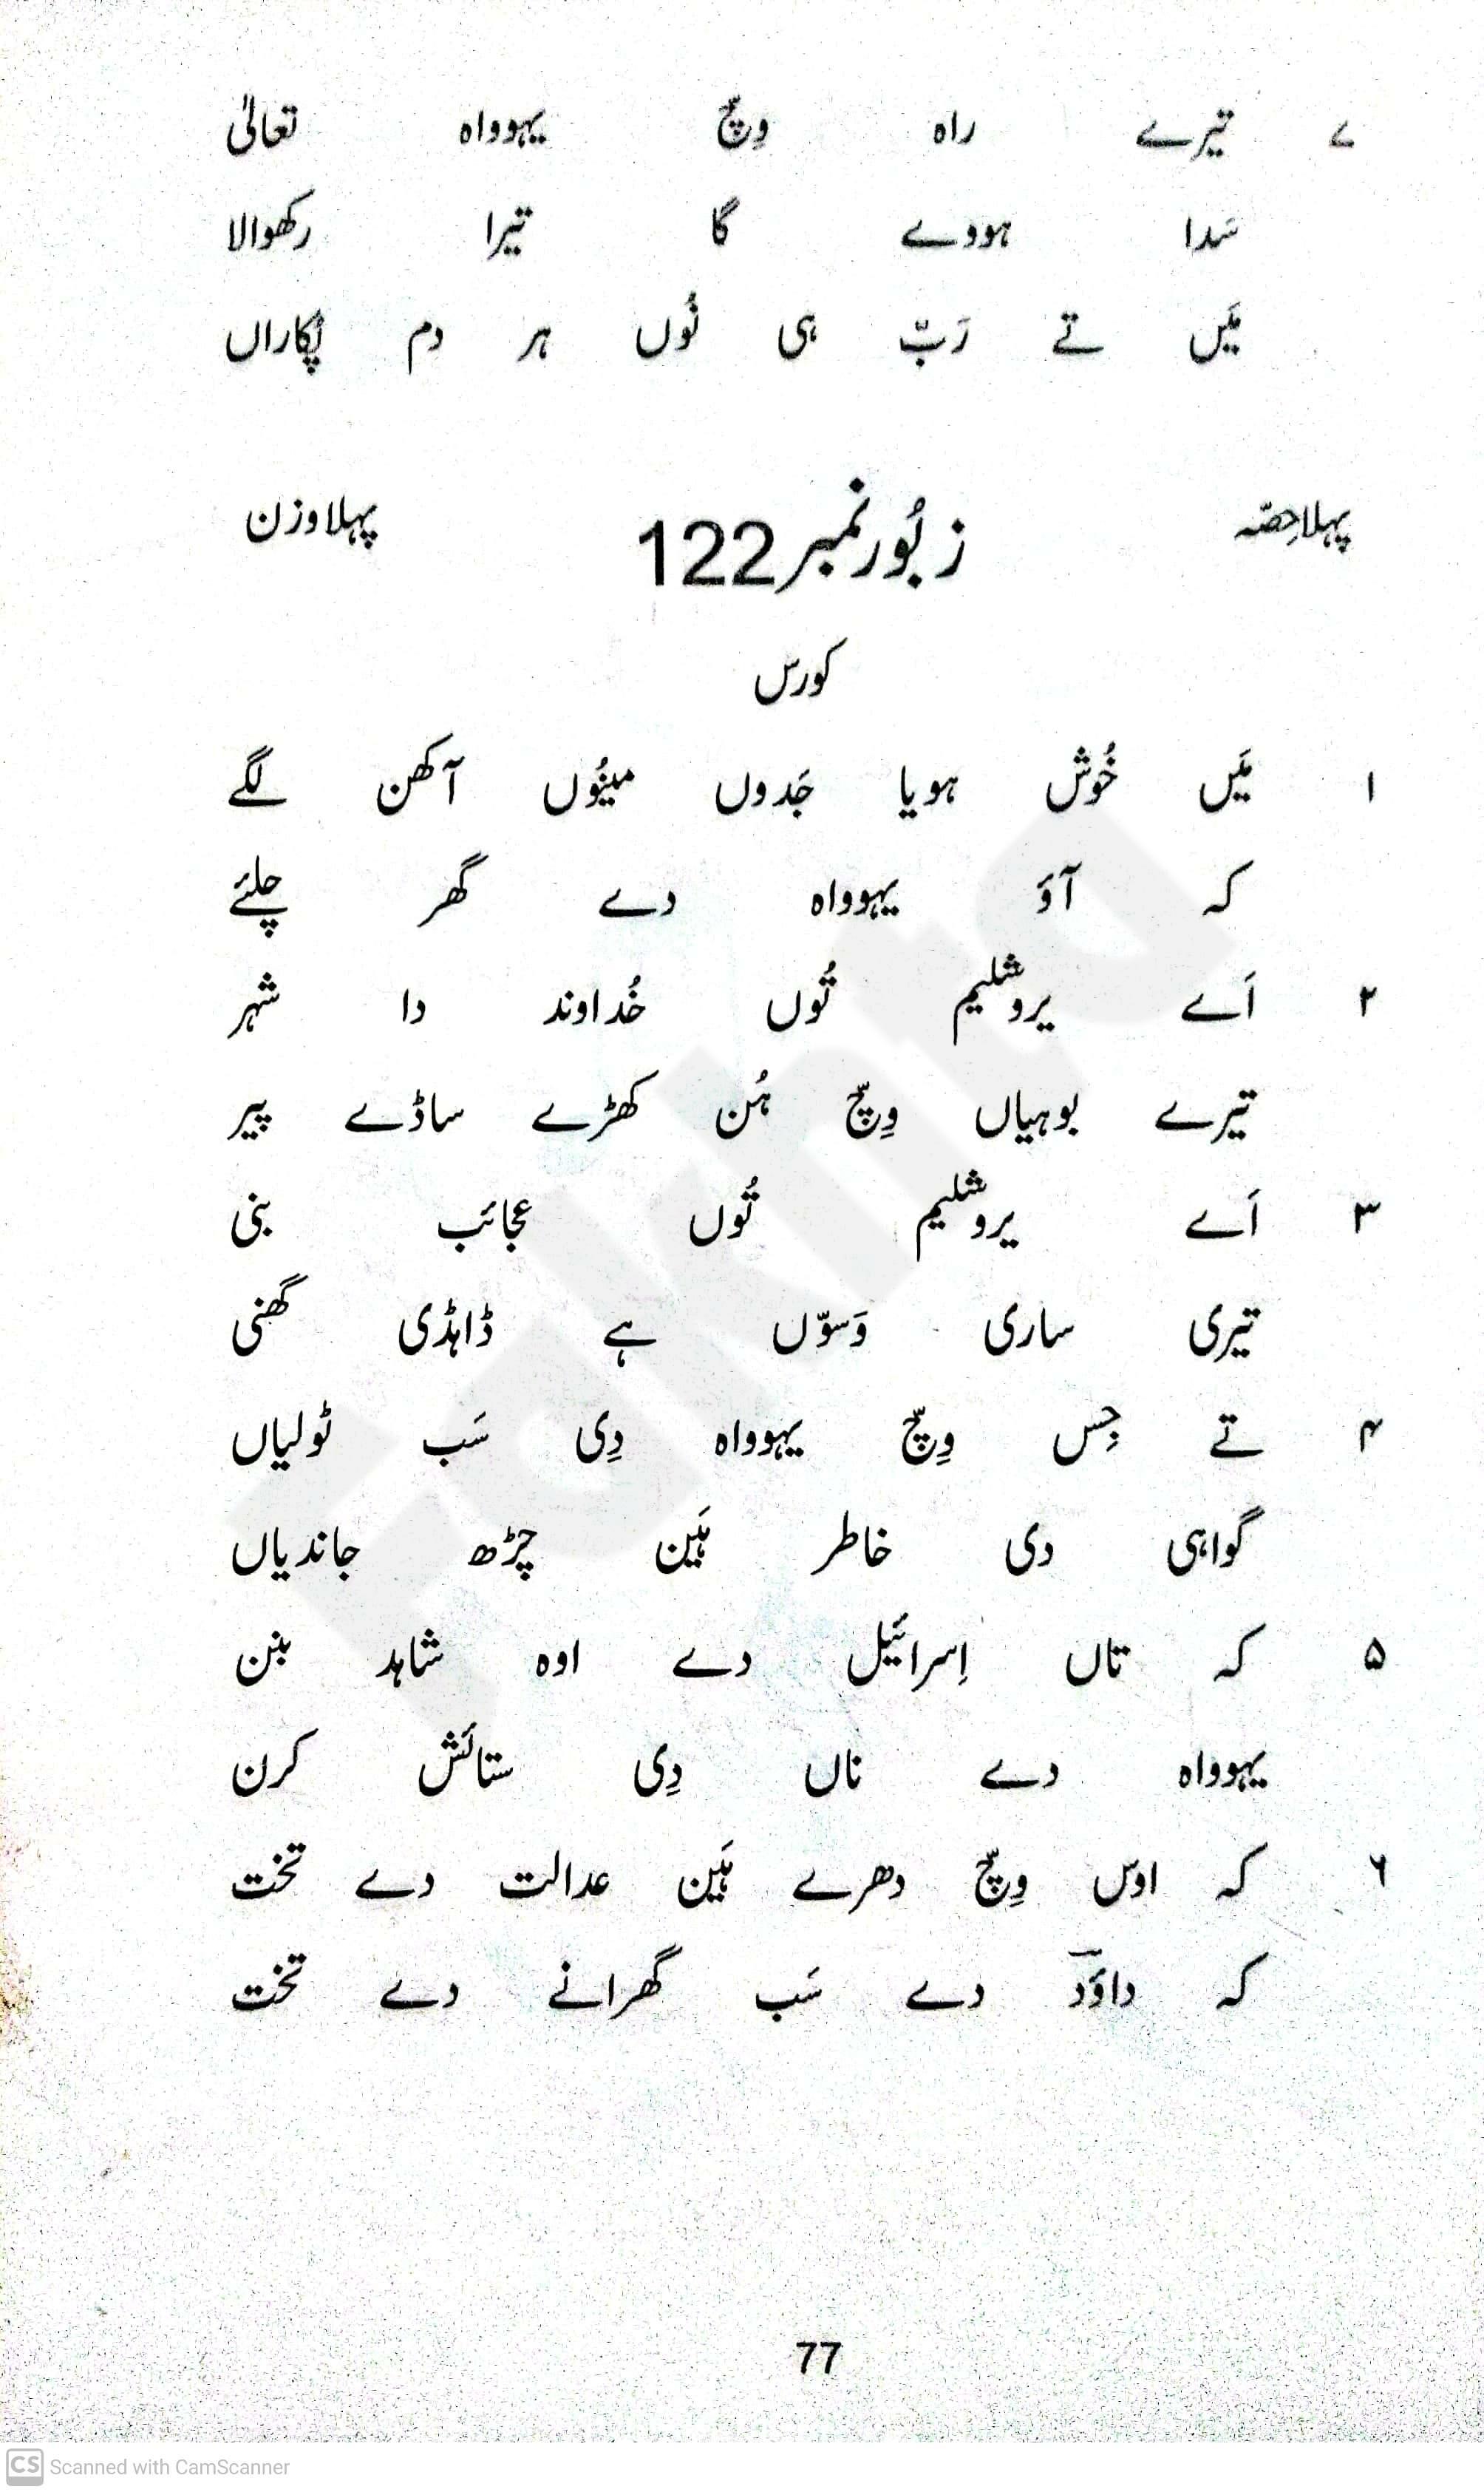 ۷ تیرے راہ وِچّ یہوواہ تعالیٰ
سَدا ہووے گا تیرا رکھوالا
مَیں تے رَبّ ہی نُوں ہر دم پُکاراں
پہلا حِصّہ زبُور نمبر 122 پہلا وزن
کورس
۱ مَیں خُوش ہویا جَدوں مینُوں آکھن لگے
کہ آؤ یہوواہ دے گھر چلئے
۲ اَے یروشلیم تُوں خُداوند دا شہر
تیرے بوہیاں وِچّ ہُن کھڑے ساڈے پیر
۳ اَے یروشلیم تُوں عجائب بنی
تیری ساری وَسوّں ہے ڈاہڈی گھنی
۴ تے جِس وِچّ یہوواہ دِی سَب ٹولیاں
گواہی دی خاطر ہَین چڑھ جاندیاں
۵ کہ تاں اِسرائیل دے اوہ شاہد بنن
یہوواہ دے ناں دِی ستائش کرن
۶ کہ اوس وِچّ دھرے ہَین عدالت دے تخت
کہ داؤد دے سَب گھرانے دے تخت
77
CS Scanned with CamScanner
Fakhta